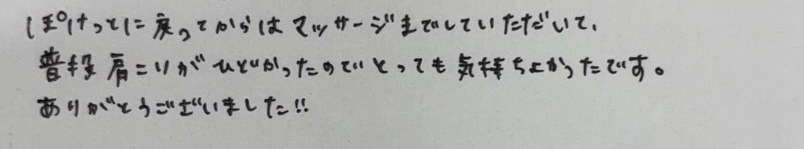 ぽけっとに戻ってからはマッサージまでしていただいて、
普段肩こりがひどかったのでとっても気持ちよかったです。
ありがとうございました!!